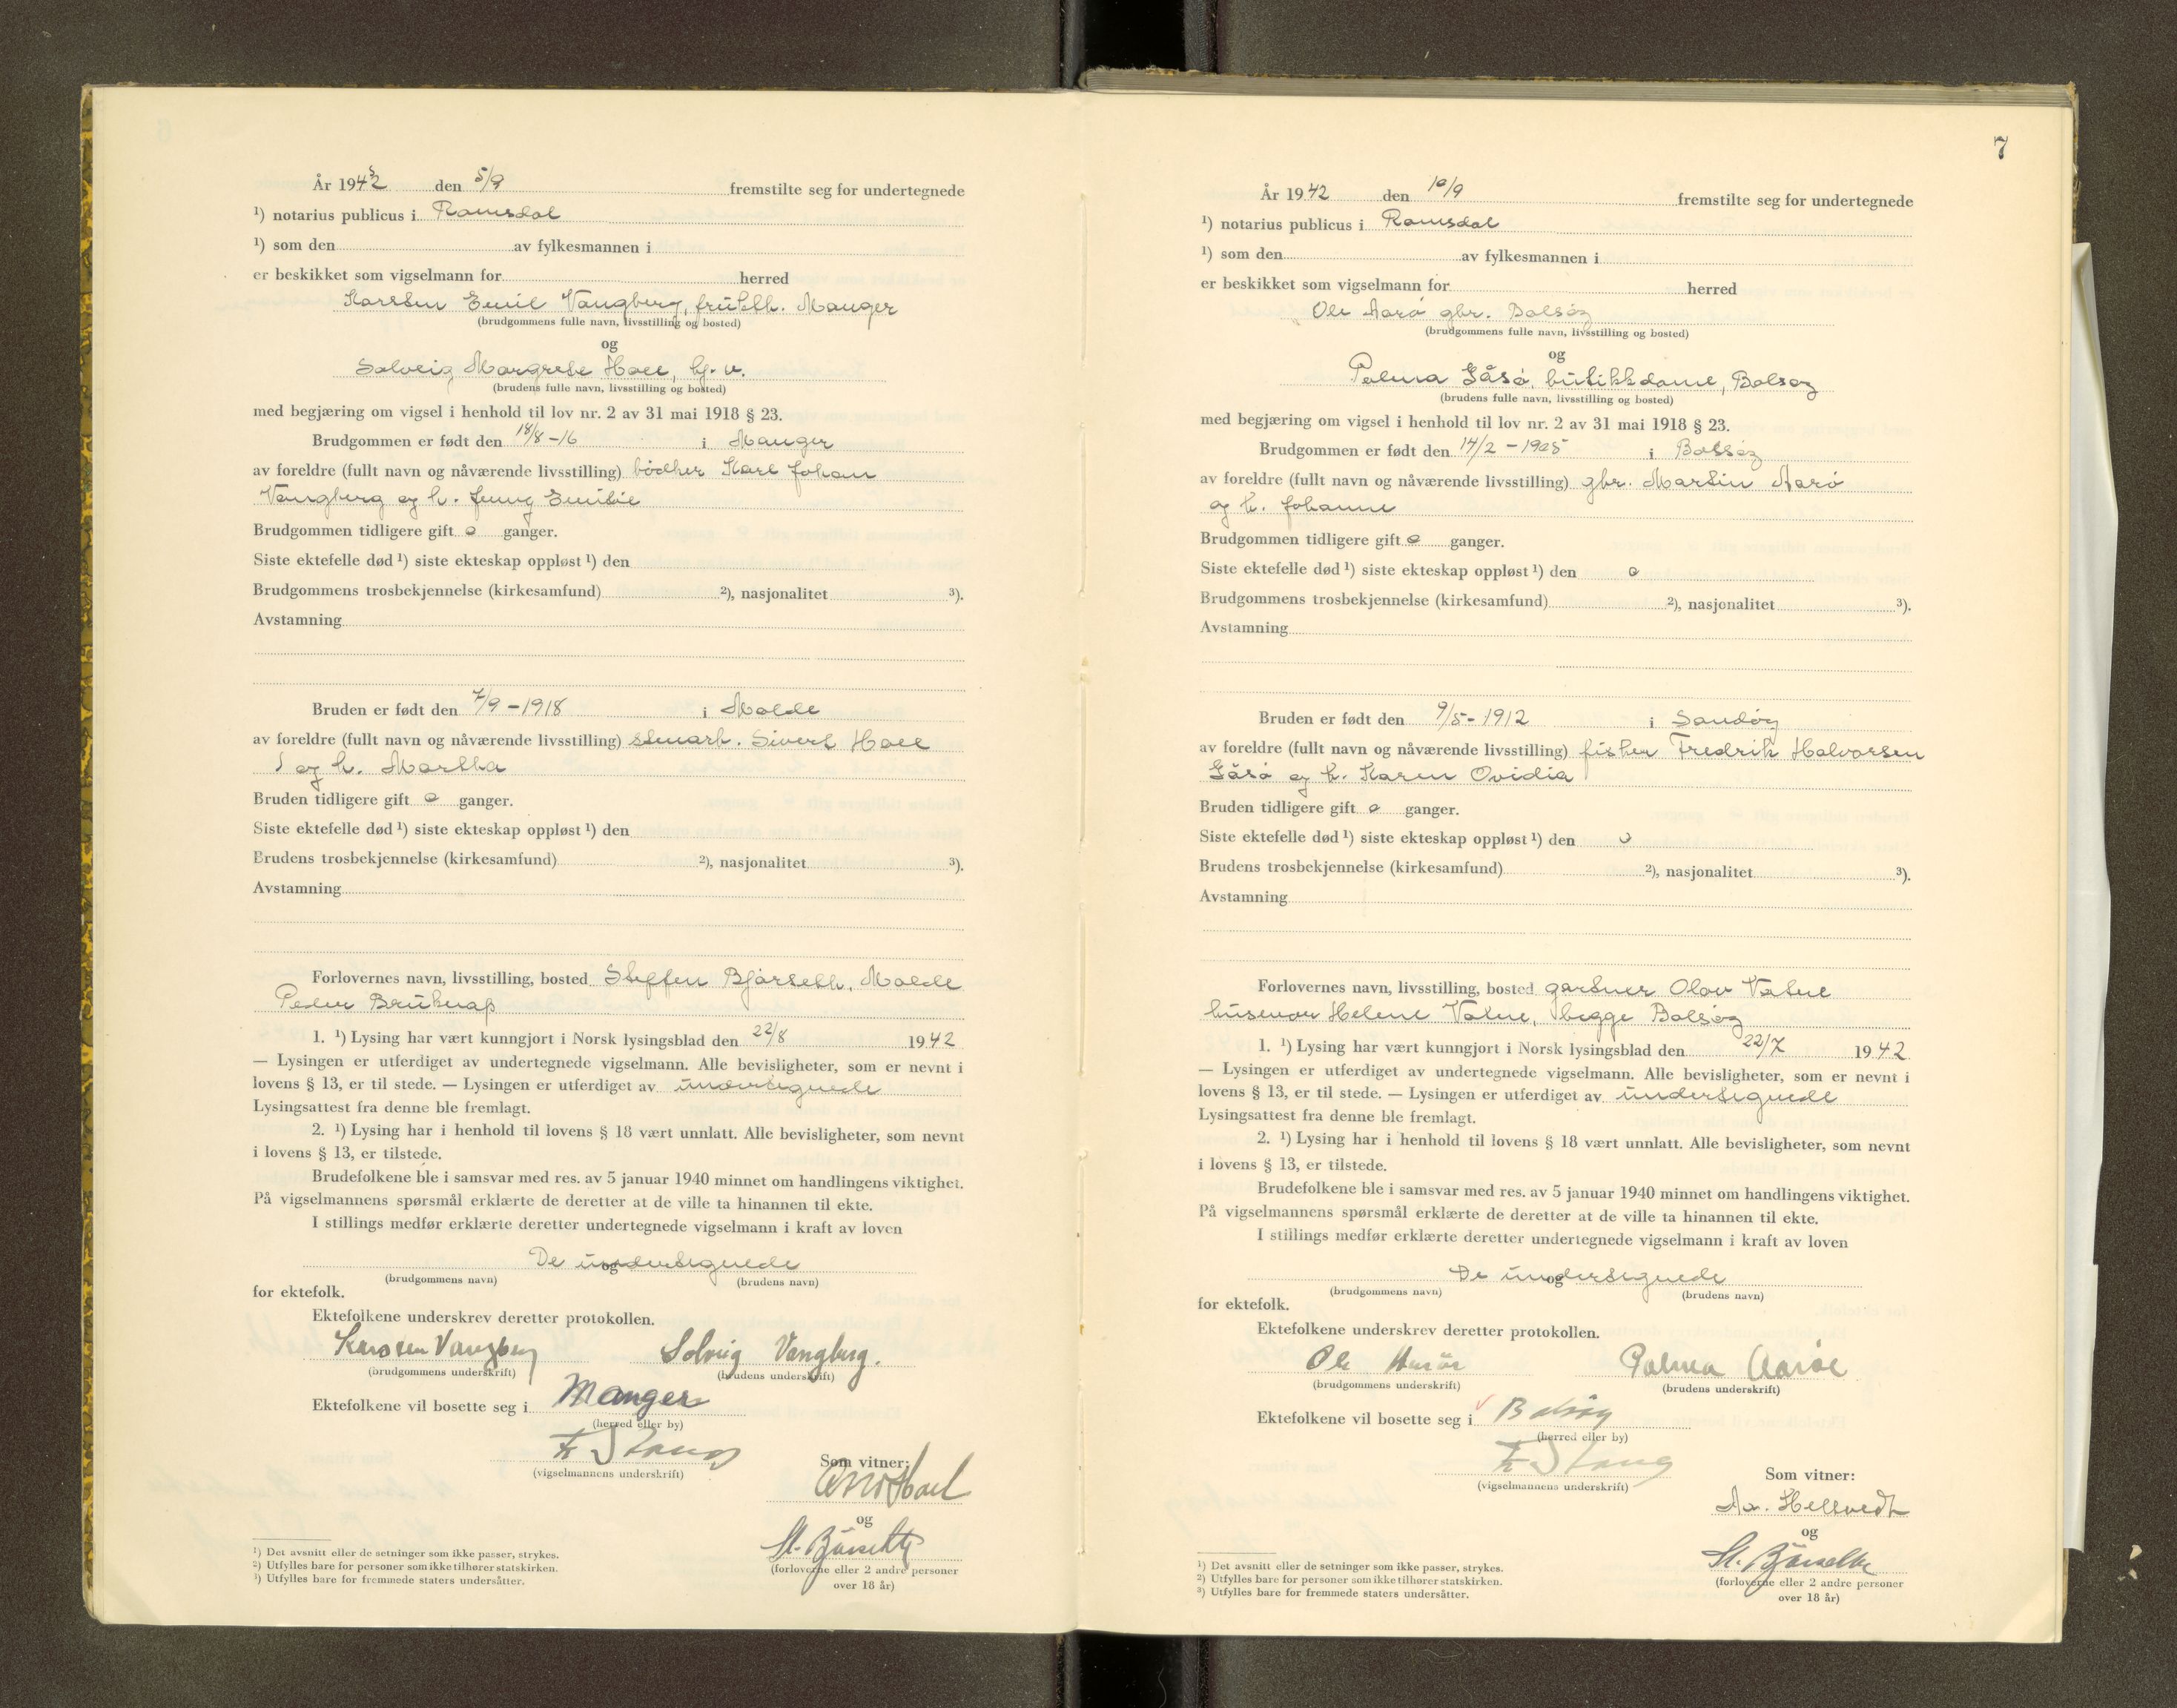 År 1942 den 5/9 fremstilte seg for undertegnede
¹) notarius publicus i Romsdal
¹) som den av fylkesmannen i
er beskikket som vigselmann for herred
Karsten Emil Vangberg, frukth. Manger
(brudgommens fulle navn, livsstilling og bosted)
og
Solveig Margrete Hoel, hj. v.
(brudens fulle navn, livsstilling og bosted)
med begjæring om vigsel i henhold til lov nr. 2 av 31 mai 1918 § 23.
Brudgommen er født den 18/8-16 i Manger
av foreldre (fullt navn og nåværende livsstilling) bödker Karl Johan
Vangberg og h. Jenny Emilie
Brudgommen tidligere gift o ganger.
Siste ektefelle død ¹) siste ekteskap oppløst ¹) den
Brudgommens trosbekjennelse (kirkesamfund) ²), nasjonalitet ³).
Avstamning
Bruden er født den 7/9-1918 i Molde
av foreldre (fullt navn og nåværende livsstilling) Sivert Hoel
og h. Martha
Bruden tidligere gift o ganger.
Siste ektefelle død ¹) siste ekteskap oppløst ¹) den
Brudens trosbekjennelse (kirkesamfund) ²), nasjonalitet ³).
Avstamning
Forlovernes navn, livsstilling, bosted Steffen Bjørseth, Molde
Peder Bruknap
1. ¹) Lysing har vært kunngjort i Norsk lysingsblad den 22/8 1942
— Lysingen er utferdiget av undertegnede vigselmann. Alle bevisligheter, som er nevnt i
lovens § 13, er til stede. — Lysingen er utferdiget av undertegnede
Lysingsattest fra denne ble fremlagt.
2. ¹) Lysing har i henhold til lovens § 18 vært unnlatt. Alle bevisligheter, som nevnt
i lovens § 13, er tilstede.
Brudefolkene ble i samsvar med res. av 5 januar 1940 minnet om handlingens viktighet.
På vigselmannens spørsmål erklærte de deretter at de ville ta hinannen til ekte.
I stillings medfør erklærte deretter undertegnede vigselmann i kraft av loven
De undertegnede
og
(brudgommens navn) (brudens navn)
for ektefolk.
Ektefolkene underskrev deretter protokollen.
Karsten Vangberg Solveig Vangberg.
(brudgommens underskrift) (brudens underskrift)
Ektefolkene vil bosette seg i Manger
(herred eller by)
(vigselmannens underskrift)
Som vitner:
og
St. Bjørseth
(forloverne eller 2 andre personer
over 18 år)
¹) Det avsnitt eller de setninger som ikke passer, strykes.
²) Utfylles bare for personer som ikke tilhører statskirken.
³) Utfylles bare for fremmede staters undersåtter.
7
År 1942 den 10/9 fremstilte seg for undertegnede
¹) notarius publicus i Romsdal
¹) som den av fylkesmannen i
er beskikket som vigselmann for herred
Ole Aarö gbr. Bolsøy
(brudgommens fulle navn, livsstilling og bosted)
og
Palma Gåsö, butikkdame, Bolsøy
(brudens fulle navn, livsstilling og bosted)
med begjæring om vigsel i henhold til lov nr. 2 av 31 mai 1918 § 23.
Brudgommen er født den 14/2-1905 i Bolsøy
av foreldre (fullt navn og nåværende livsstilling) gbr. Martin Aarö
og h. Johanne
Brudgommen tidligere gift o ganger.
Siste ektefelle død ¹) siste ekteskap oppløst ¹) den o
Brudgommens trosbekjennelse (kirkesamfund) ²), nasjonalitet ³).
Avstamning
Bruden er født den 9/5-1912 i Sandöy
av foreldre (fullt navn og nåværende livsstilling) fisker Fredrik Halvorsen
Gåsö og h. Karen Ovidia
Bruden tidligere gift o ganger.
Siste ektefelle død ¹) siste ekteskap oppløst ¹) den o
Brudens trosbekjennelse (kirkesamfund) ²), nasjonalitet ³).
Avstamning
Forlovernes navn, livsstilling, bosted gartner Olav Vatne
husmor Helene Vatne, begge Bolsøy
1. ¹) Lysing har vært kunngjort i Norsk lysingsblad den 22/7 1942
— Lysingen er utferdiget av undertegnede vigselmann. Alle bevisligheter, som er nevnt i
lovens § 13, er til stede. — Lysingen er utferdiget av undertegnede
Lysingsattest fra denne ble fremlagt.
2. ¹) Lysing har i henhold til lovens § 18 vært unnlatt. Alle bevisligheter, som nevnt
i lovens § 13, er tilstede.
Brudefolkene ble i samsvar med res. av 5 januar 1940 minnet om handlingens viktighet.
På vigselmannens spørsmål erklærte de deretter at de ville ta hinannen til ekte.
I stillings medfør erklærte deretter undertegnede vigselmann i kraft av loven
De undertegnede
og
(brudgommens navn) (brudens navn)
for ektefolk.
Ektefolkene underskrev deretter protokollen.
Ole Aaröe Palma Aaröe
(brudgommens underskrift) (brudens underskrift)
Ektefolkene vil bosette seg i Bolsöy
(herred eller by)
(vigselmannens underskrift)
Som vitner:
Aa. Hellvedt
og
St. Bjørseth
(forloverne eller 2 andre personer
over 18 år)
¹) Det avsnitt eller de setninger som ikke passer, strykes.
²) Utfylles bare for personer som ikke tilhører statskirken.
³) Utfylles bare for fremmede staters undersåtter.